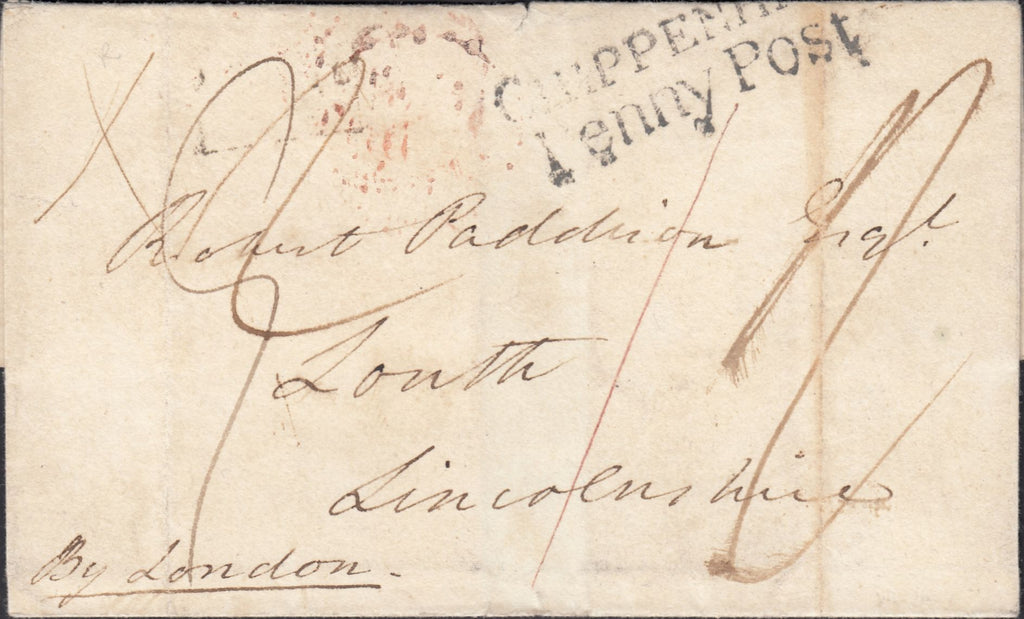 CHIPPENH
Penny Post
Robert Paddison Esqr.
Louth
Lincolnshire
By London.